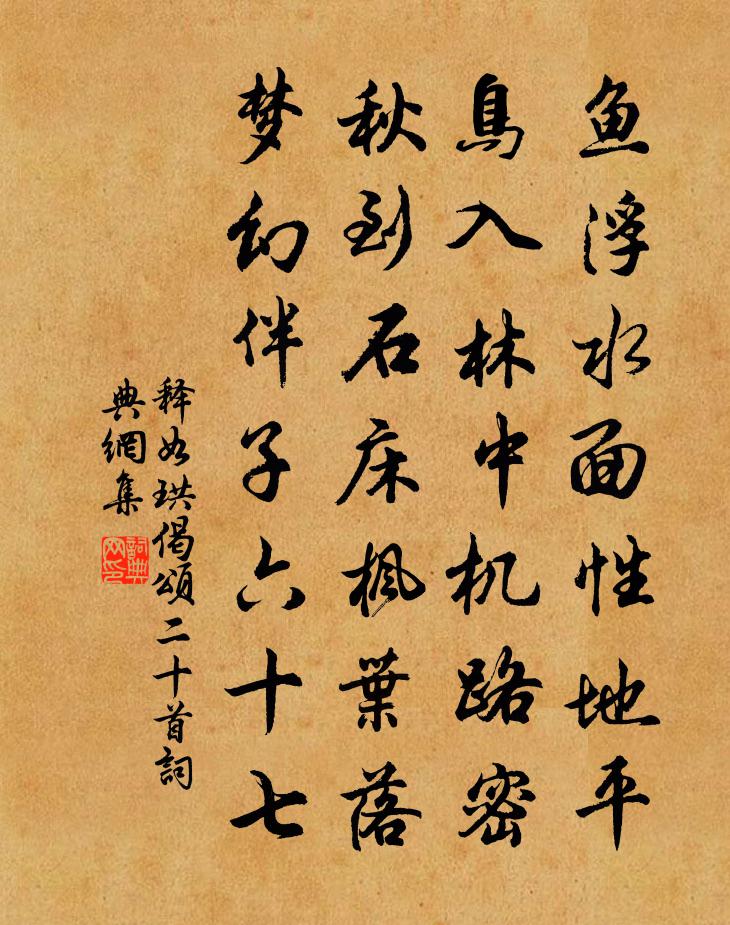 鱼浮水面性地平
鳥入林中机路密
秋到石床楓葉落
梦幻伴子六十七
释如珙偈頌二十首詞
典網集
詞典
网印